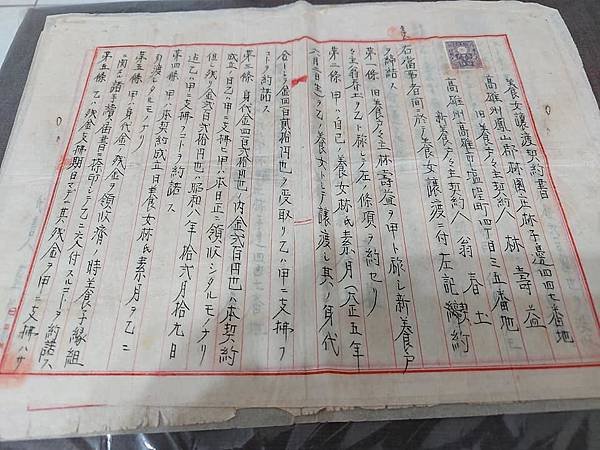 養女讓渡契約書
高雄州鳳山郡林園庄林子邊四四七番地
旧養戶主契約人 林壽益
高雄州高雄市塩埕町四丁目三五番地
新養戶主契約人 翁春土
右當事者間ニ於テ養女讓渡ニ付左記契約
ヲ締結ス
第一條 旧養戶主林壽益ヲ甲ト称シ新養戶
主翁春土ヲ乙ト称シ左ノ條項ヲ約セリ
第二條 甲ハ自己ノ養女林氏素月(大正五年
六月二日生)ヲ乙ノ養女トシテ讓渡シ其ノ身代
金トシテ金四百貳拾円也ヲ受取リ乙ハ甲ニ支拂フ
コトヲ約諾ス
第三條 身代金四百貳拾円也ノ内金貳百円也ハ本契約
成立ノ日乙ハ甲ニ支拂ヒ甲ハ本日正ニ領收シタルモノナリ
但シ残リ金貳百貳拾円也ハ昭和八年拾貳月拾九日
迄乙ハ甲ニ支拂フコトヲ約諾ス
第四條 甲ハ本契約成立ノ日養女林氏素月ヲ乙ニ
引渡シタルモノナリ
第五條 甲ハ身代金ノ残金ヲ領收濟ノ時養子縁組
ニ関スル諸手續届書ニ捺印シテ乙ニ交付スルコトヲ約諾ス
第六條 乙ハ残金支拂期日マデニ其残金ヲ甲ニ支拂ハサ